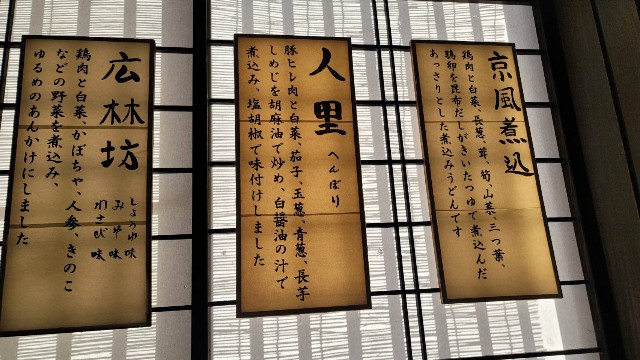 京風煮込
鶏肉と白菜、長葱、茸、筍、山菜、三つ葉、
鶏卵を昆布だしがきいたつゆで煮込んだ
あっさりとした煮込みうどんです
人里 へんぼり
豚ヒレ肉と白菜、茄子、玉葱、青葱、長芋
しめじを胡麻油で炒め、白醤油の汁で
煮込み、塩胡椒で味付けしました
広林坊
しょうゆ味
みそ味
わさび味
鶏肉と白菜、かぼちゃ、人参、きのこ
などの野菜を煮込み、
ゆるめのあんかけにしました